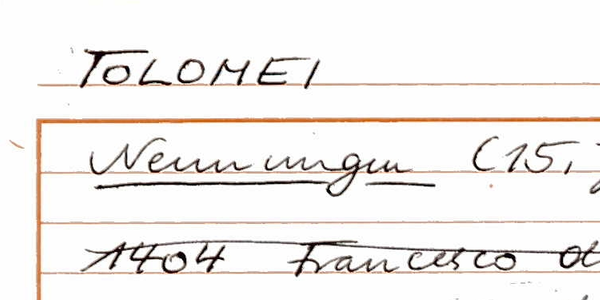 TOLOMEI
Nennungen (15,
1404 Francesco